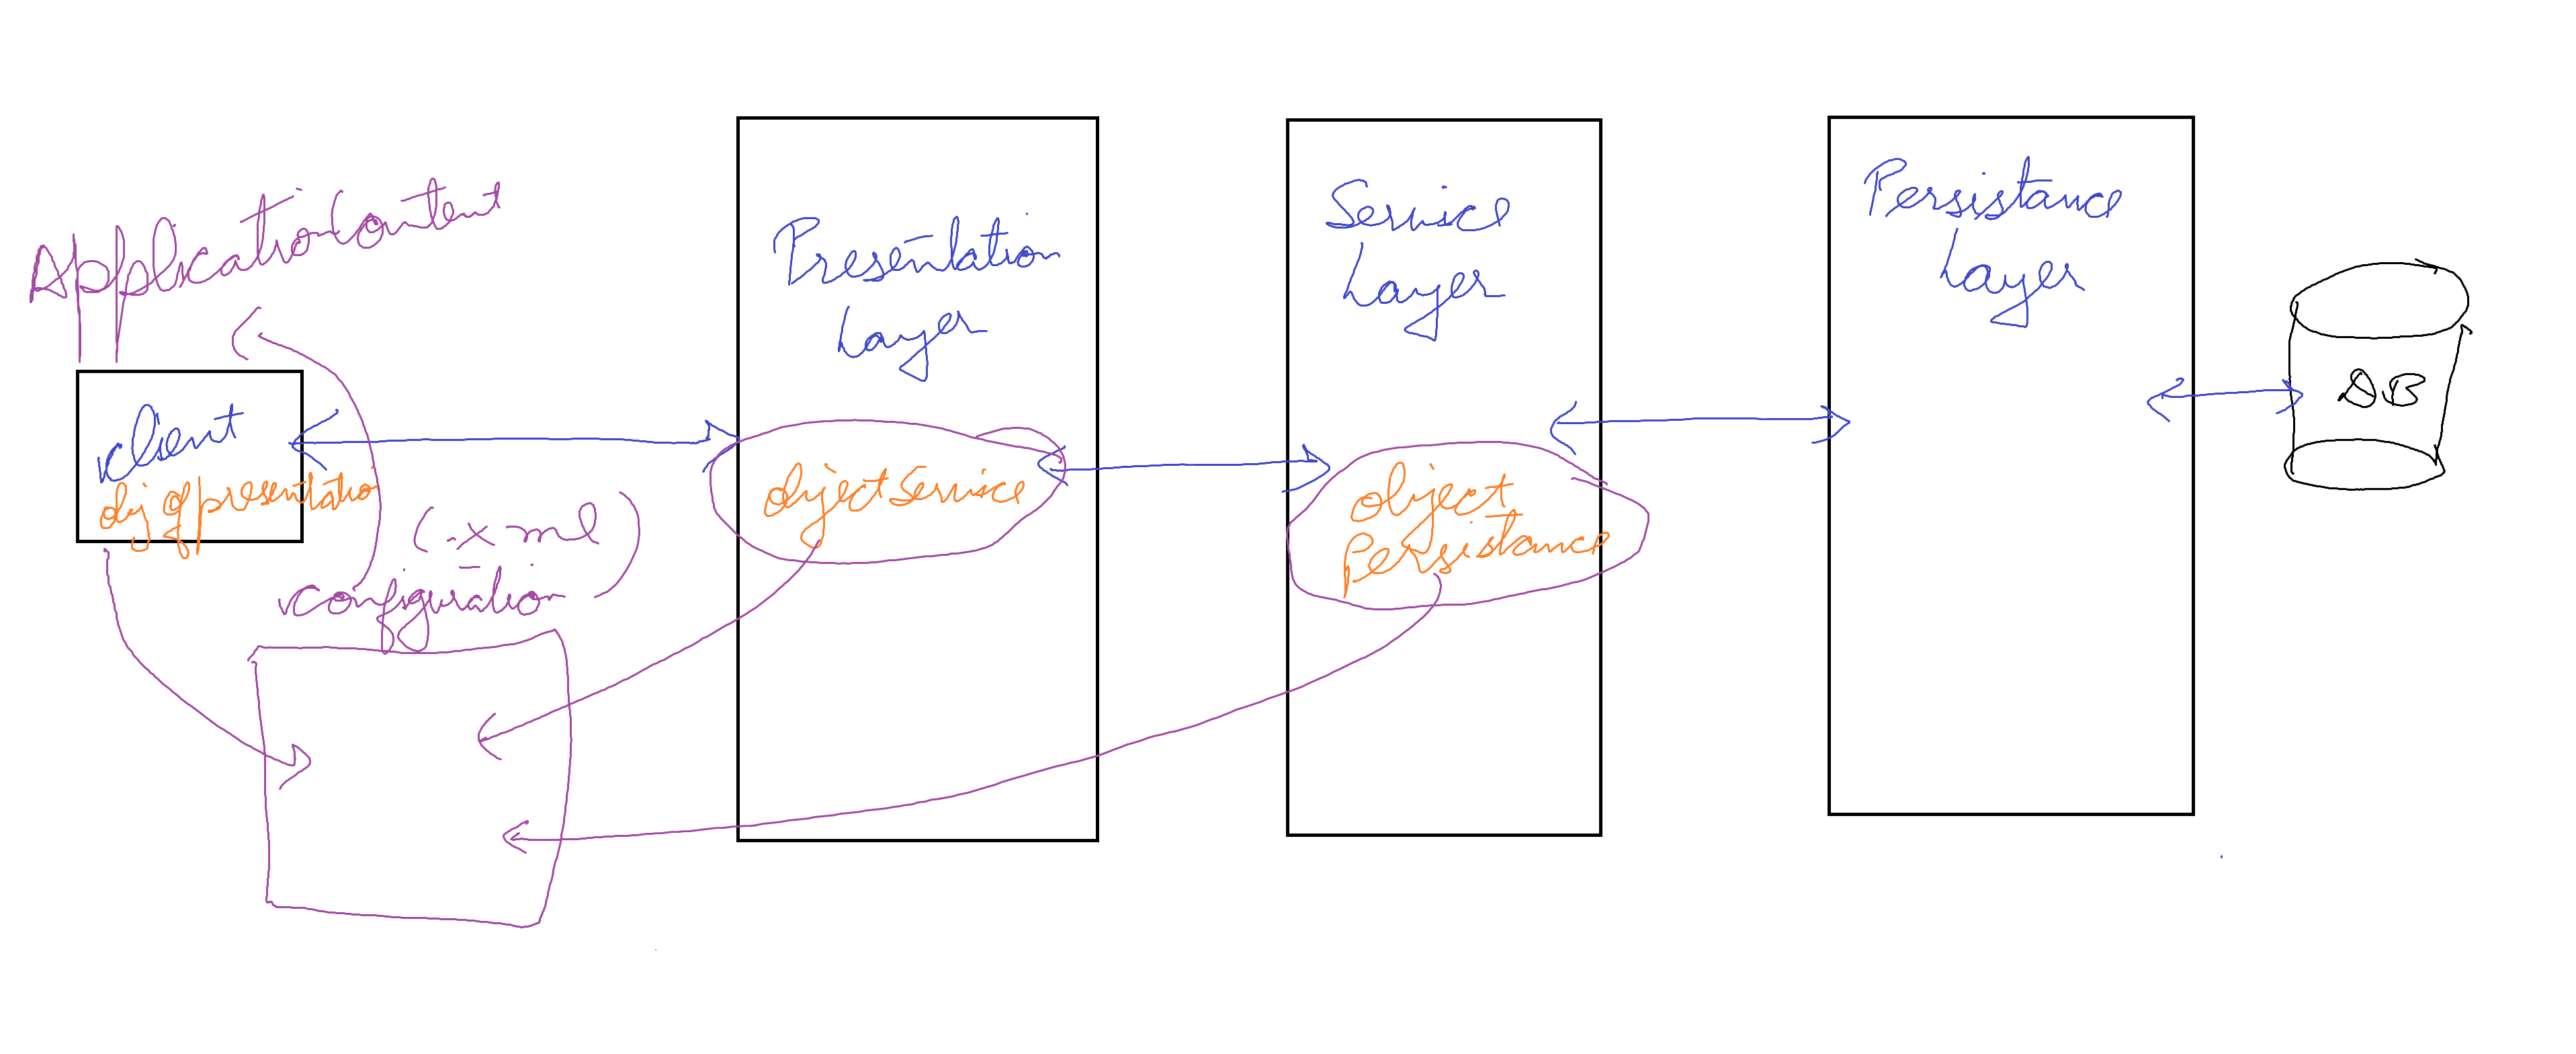 ApplicationContent
client
obj of presentatio
(.xml)
configuration
Presentation
Layer
objectService
Service
Layer
object
persistance
Persistance
Layer
DB